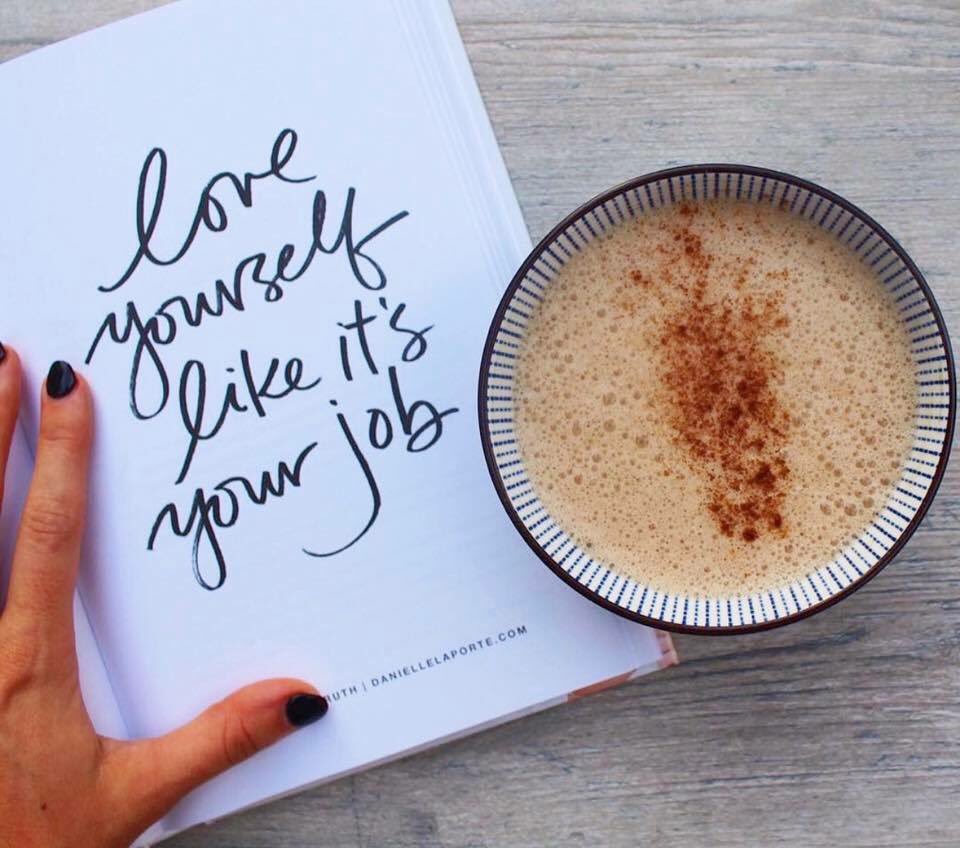 love
yourself
like it's
your job
RUTH | DANIELLELAPORTE.COM